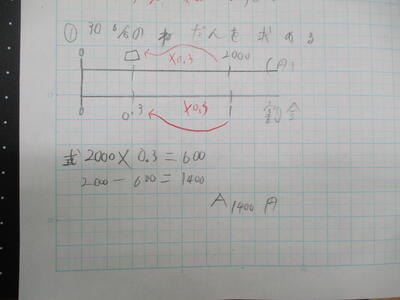 ① 30%のねだんを求める
0 □ ×0.3 2000 (円)
0 0.3 ×0.3 1 割合
式 2000×0.3=600
2000-600=1400
A 1400円